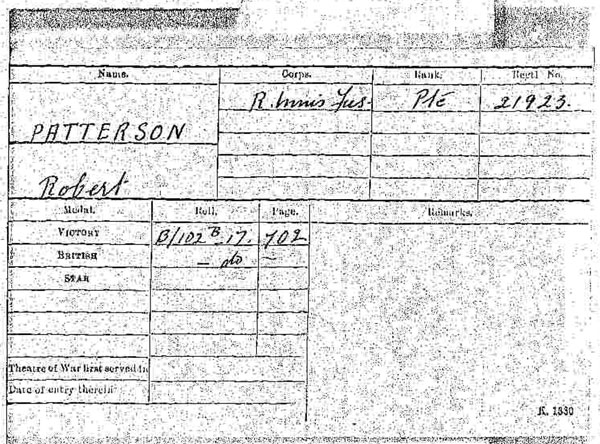 Name. Corps. Rank. Regtl. No.
R. Innis Fus. Pte 21923.
PATTERSON
Robert
Medal. Roll. Page. Remarks.
VICTORY B/102 B. 17. 702
BRITISH — do —
STAR
Theatre of War first served in
Date of entry therein
K. 1380